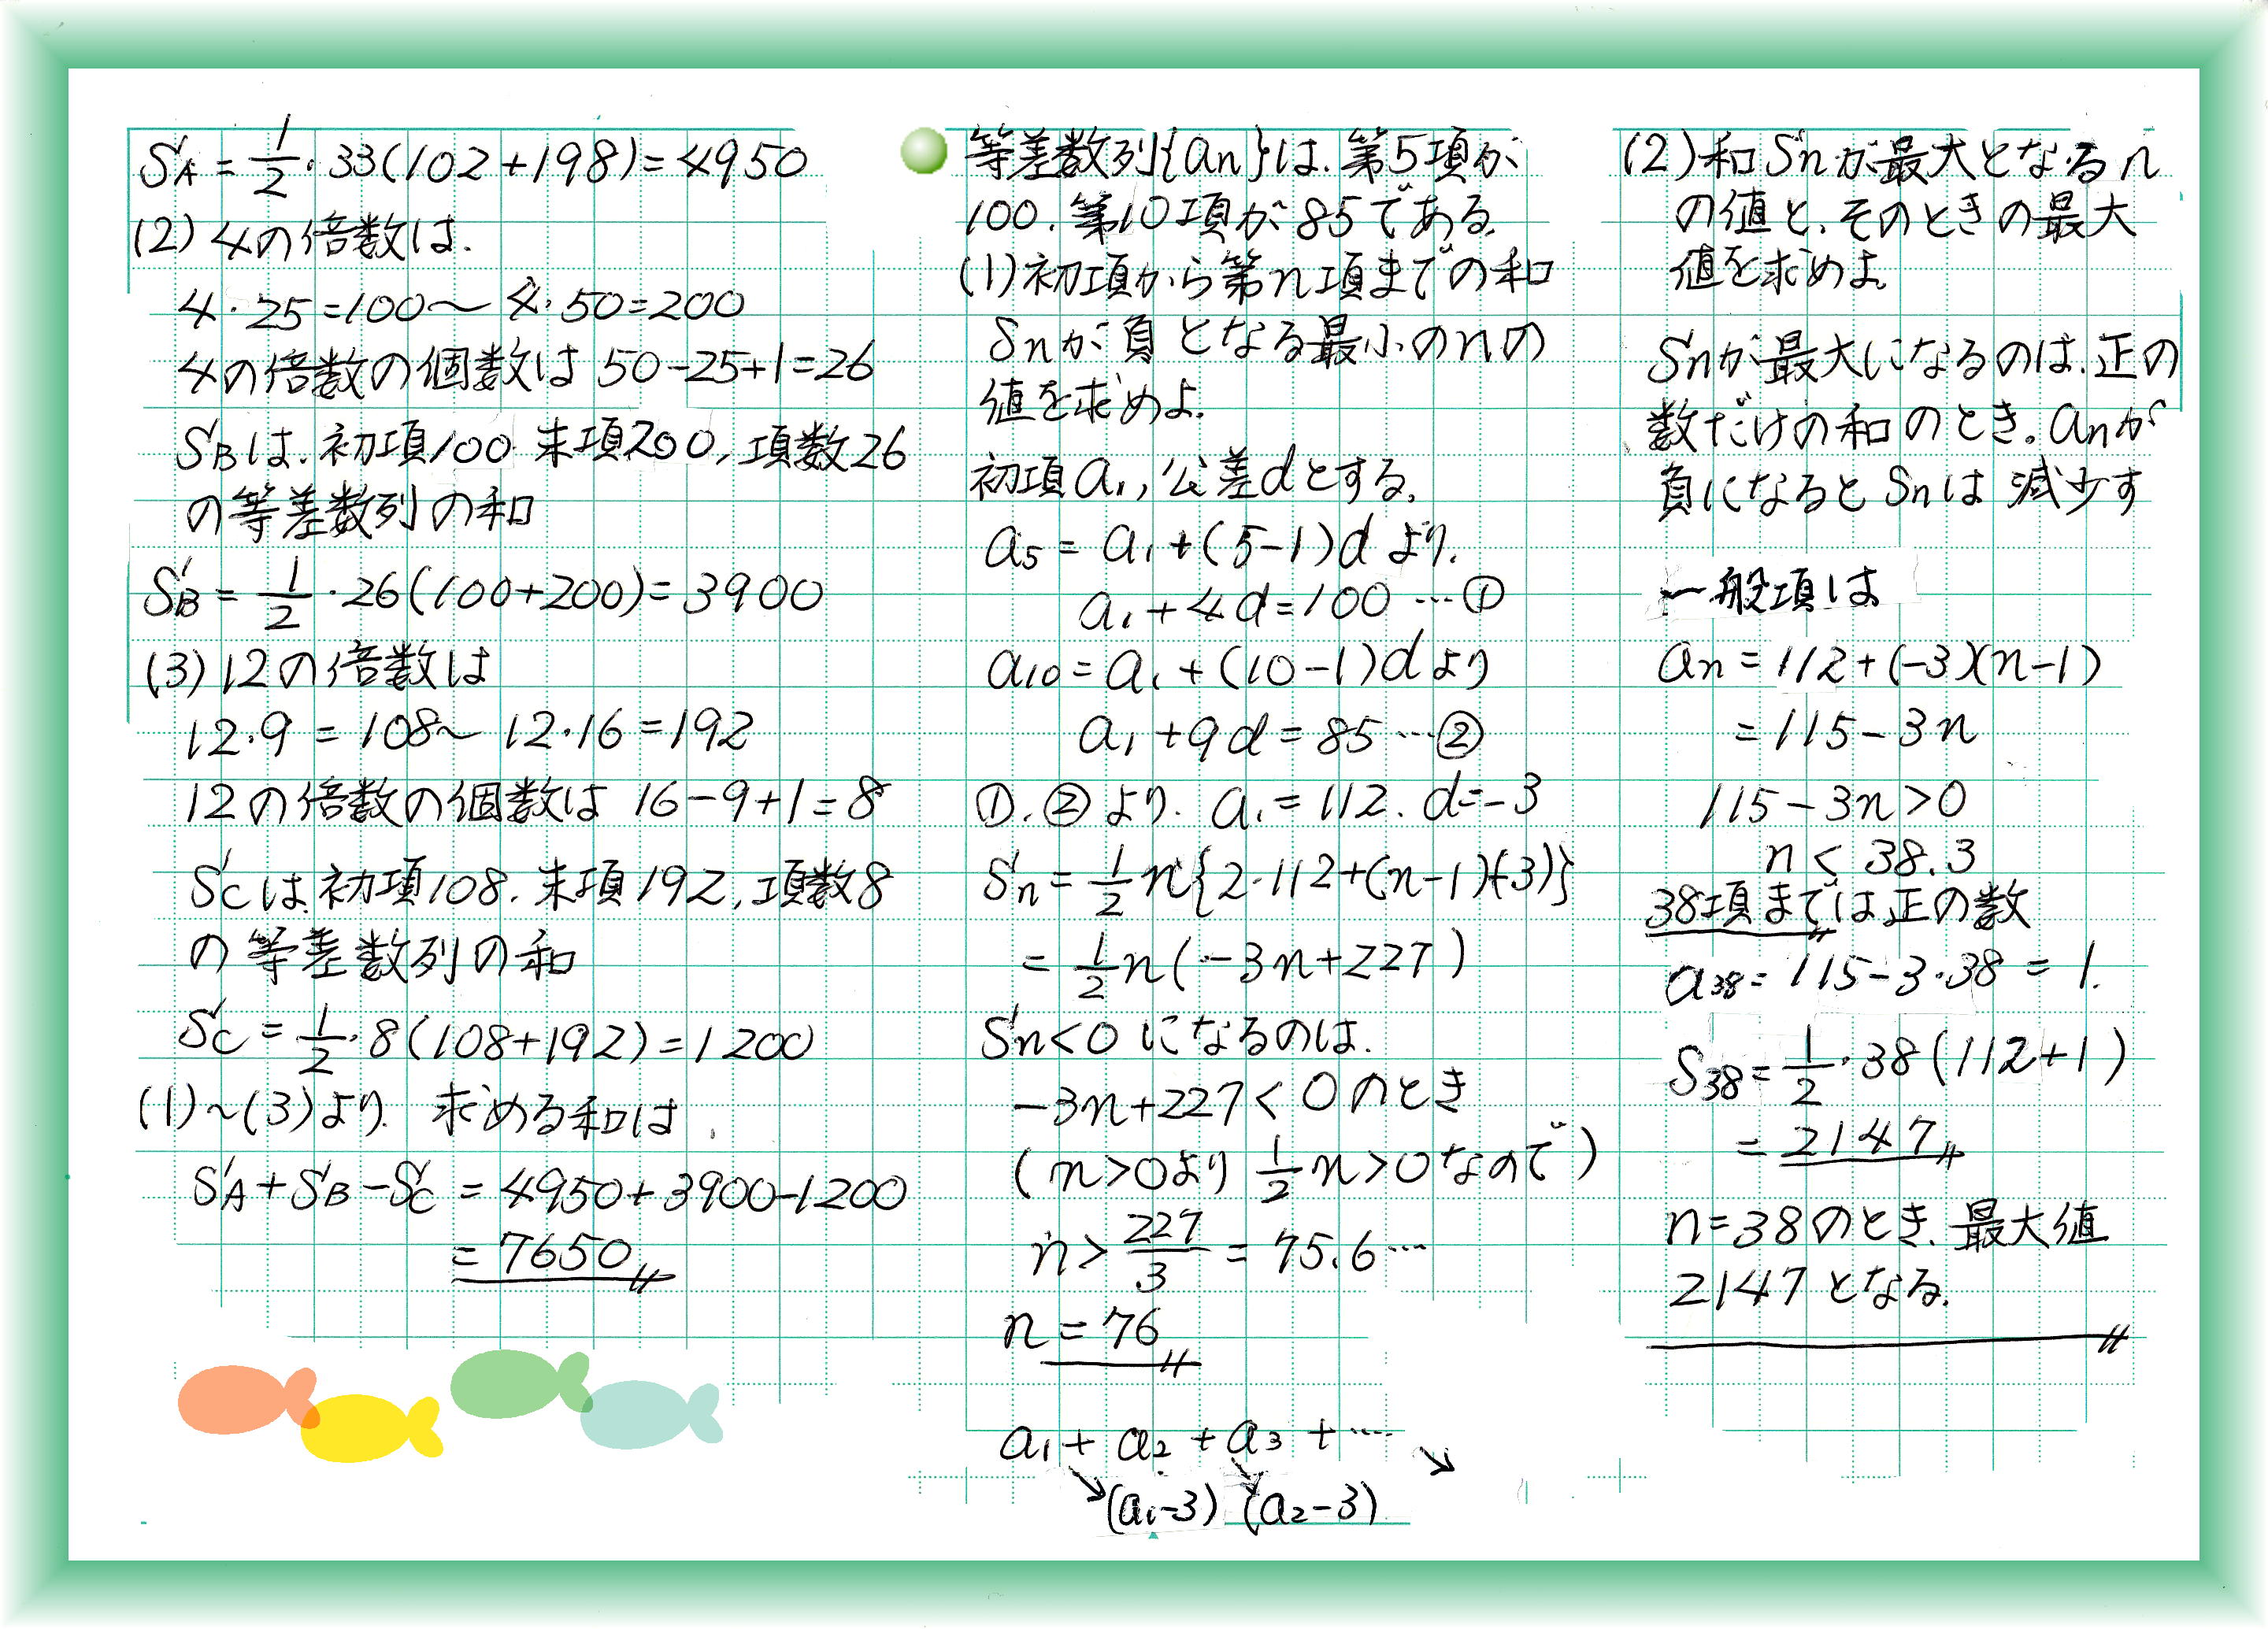 S_A = 1/2・33(102+198)=4950
(2) 4の倍数は、
4・25=100〜4・50=200
4の倍数の個数は 50-25+1=26
S_Bは、初項100、末項200、項数26
の等差数列の和
S_B = 1/2・26(100+200)=3900
(3) 12の倍数は
12・9=108〜12・16=192
12の倍数の個数は 16-9+1=8
S_Cは、初項108、末項192、項数8
の等差数列の和
S_C = 1/2・8(108+192)=1200
(1)〜(3)より、求める和は
S_A+S_B-S_C = 4950+3900-1200
= 7650
等差数列{an}は、第5項が
100、第10項が85である。
(1)初項から第n項までの和
Snが負となる最小のnの
値を求めよ。
初項a1, 公差dとする。
a5 = a1+(5-1)dより、
a1+4d=100 …①
a10=a1+(10-1)dより
a1+9d=85 …②
①、②より、a1=112、d=-3
Sn=1/2n{2・112+(n-1)(-3)}
=1/2n(-3n+227)
Sn<0になるのは、
-3n+227<0のとき
(n>0より 1/2n>0なので)
n> 227/3 = 75.6…
n=76
a1+a2+a3+…
↘(a1-3) ↘(a2-3) ↘
(2)和Snが最大となるn
の値と、そのときの最大
値を求めよ。
Snが最大になるのは、正の
数だけの和のとき。anが
負になるとSnは減少す
一般項は
an=112+(-3)(n-1)
=115-3n
115-3n>0
n<38.3
38項までは正の数
a38=115-3・38=1.
S38=1/2・38(112+1)
=2147
n=38のとき、最大値
2147となる。